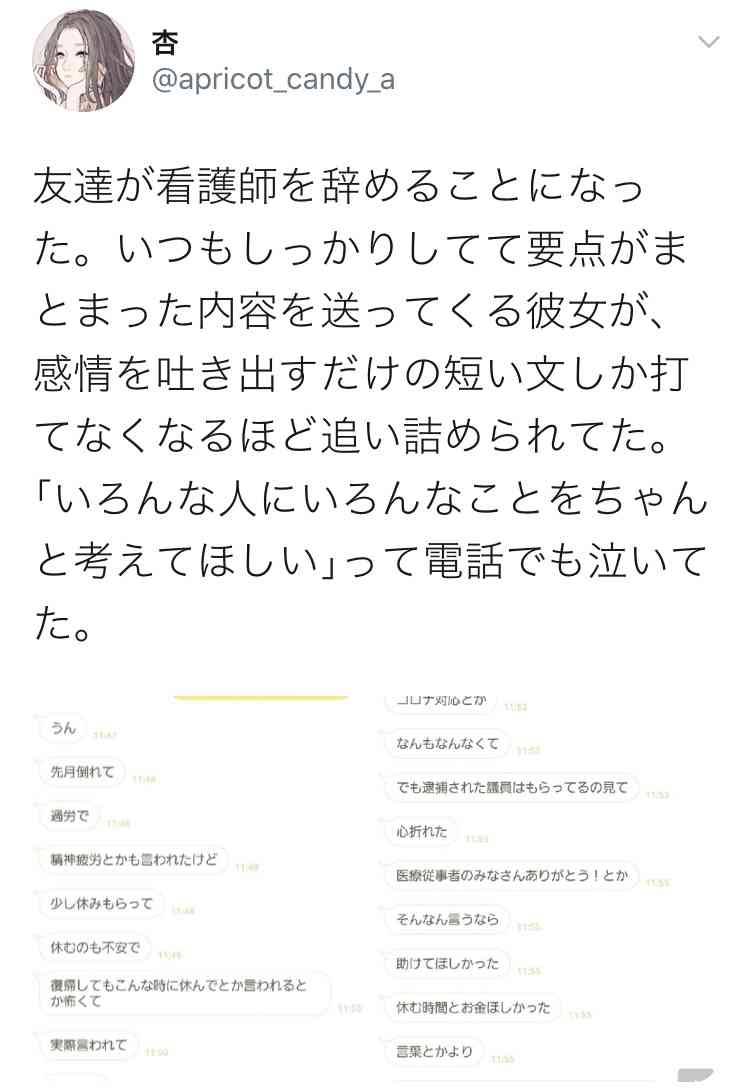 杏
@apricot_candy_a
友達が看護師を辞めることになっ
た。いつもしっかりしてて要点がま
とまった内容を送ってくる彼女が、
感情を吐き出すだけの短い文しか打
てなくなるほど追い詰められてた。
「いろんな人にいろんなことをちゃん
と考えてほしい」って電話でも泣いて
た。
うん 11:47
先月倒れて 11:48
過労で 11:48
精神疲労とかも言われたけど 11:49
少し休みもらって 11:49
休むのも不安で 11:49
復帰してもこんな時に休んでとか言われると
か怖くて 11:50
実際言われて 11:50
コロナ対応とか 11:52
なんもなんなくて 11:52
でも逮捕された議員はもらってるの見て 11:53
心折れた 11:53
医療従事者のみなさんありがとう！とか 11:55
そんなん言うなら 11:55
助けてほしかった 11:55
休む時間とお金ほしかった 11:55
言葉とかより 11:55